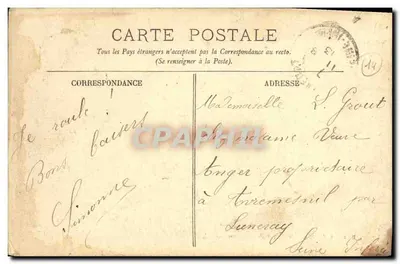 CARTE POSTALE
Tous les Pays étrangers n'acceptent pas la Correspondance au recto.
(Se renseigner à la Poste).
CORRESPONDANCE
Je roule
Bons baisers
Simonne
ADRESSE
Mademoiselle S. Grout
Madame Veuve
Anger propriétaire
à Avremesnil par
Luneray
Seine Infre
14
CARTAPHIL